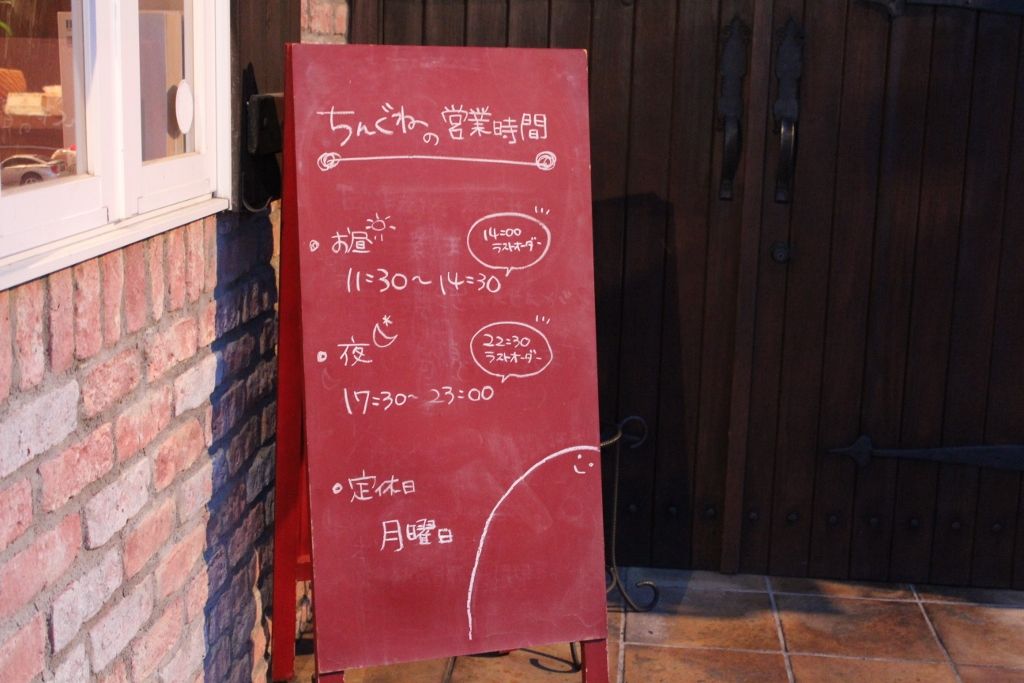 ちんぐねの営業時間
お昼
14:00
ラストオーダー
11:30~14:30
夜
22:30
ラストオーダー
17:30~23:00
定休日
月曜日